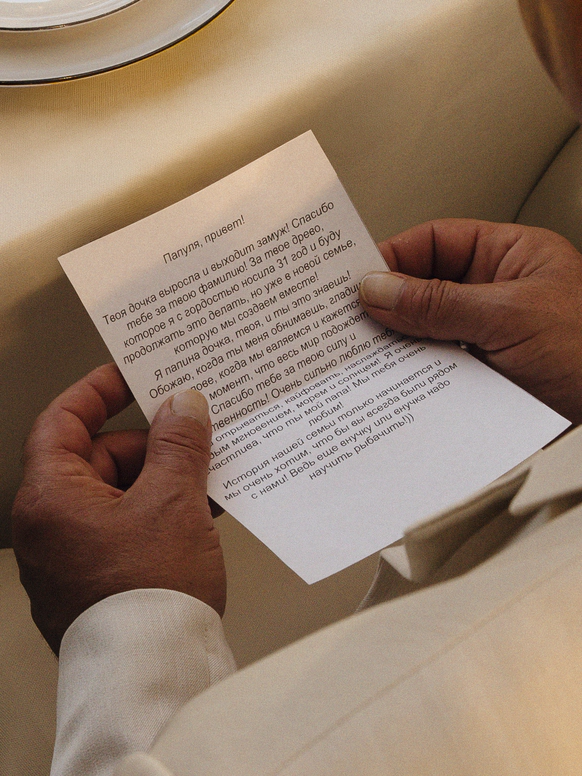 Папуля, привет!
Твоя дочка выросла и выходит замуж! Спасибо
тебе за твою фамилию! За твое древо,
которое я с гордостью носила 31 год и буду
продолжать это делать, но уже в новой семье,
которую мы создаем вместе!
Я папина дочка, твоя, и ты это знаешь!
Обожаю, когда ты меня обнимаешь,
когда мы валяемся и кажется
момент, что весь мир подождет
Спасибо тебе за твою силу и
Очень сильно люблю
отрываться, кайфовать,
мгновением, морем и солнцем! Я
что ты мой папа! Мы тебя очень
любим!
История нашей семьи только начинается и
мы очень хотим, что бы вы всегда были рядом
с нами! Ведь еще внучку или внучка надо
научить рыбачить!))